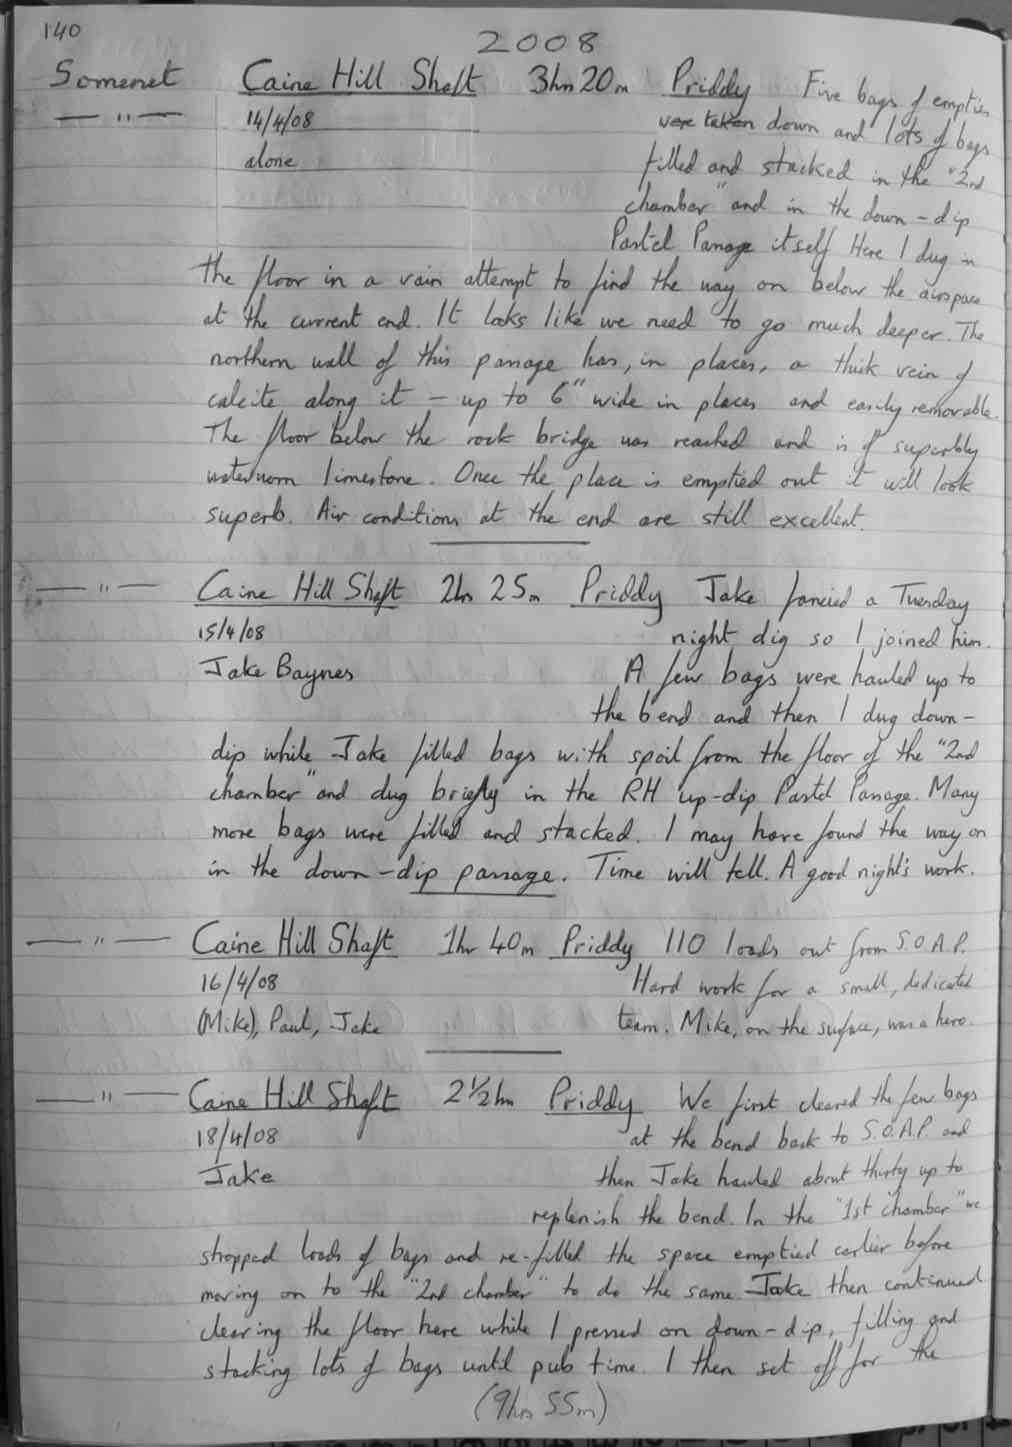 140
2008
Somerset Caine Hill Shaft 3hrs 20m Priddy Five bags of empties
— " — 14/4/08 were taken down and lots of bags
alone filled and stacked in the "2nd
chamber" and in the down-dip
Pastel Passage itself Here I dug in
the floor in a vain attempt to find the way on below the airspace
at the current end. It looks like we need to go much deeper. The
northern wall of this passage has, in places, a thick vein of
calcite along it – up to 6" wide in places and easily removable.
The floor below the rock bridge was reached and is of superbly
waterworn limestone. Once the place is emptied out it will look
superb. Air conditions at the end are still excellent.
— " — Caine Hill Shaft 2hrs 25m Priddy Jake fancied a Tuesday
15/4/08 night dig so I joined him.
Jake Baynes A few bags were hauled up to
the bend and then I dug down-
dip while Jake filled bags with spoil from the floor of the "2nd
chamber" and dug briefly in the RH up-dip Pastel Passage. Many
more bags were filled and stacked. I may have found the way on
in the down-dip passage. Time will tell. A good night's work.
— " — Caine Hill Shaft 1hr 40m Priddy 110 loads out from S.O.A.P.
16/4/08 Hard work for a small, dedicated
(Mike), Paul, Jake team. Mike, on the surface, was a hero.
— " — Caine Hill Shaft 2½hrs Priddy We first cleared the few bags
18/4/08 at the bend back to S.O.A.P. and
Jake then Jake hauled about thirty up to
replenish the bend. In the "1st chamber" we
stropped loads of bags and re-filled the space emptied earlier before
moving on to the "2nd chamber" to do the same. Jake then continued
clearing the floor here while I pressed on down-dip, filling and
stacking lots of bags until pub time. I then set off for the
(9hrs 55m)